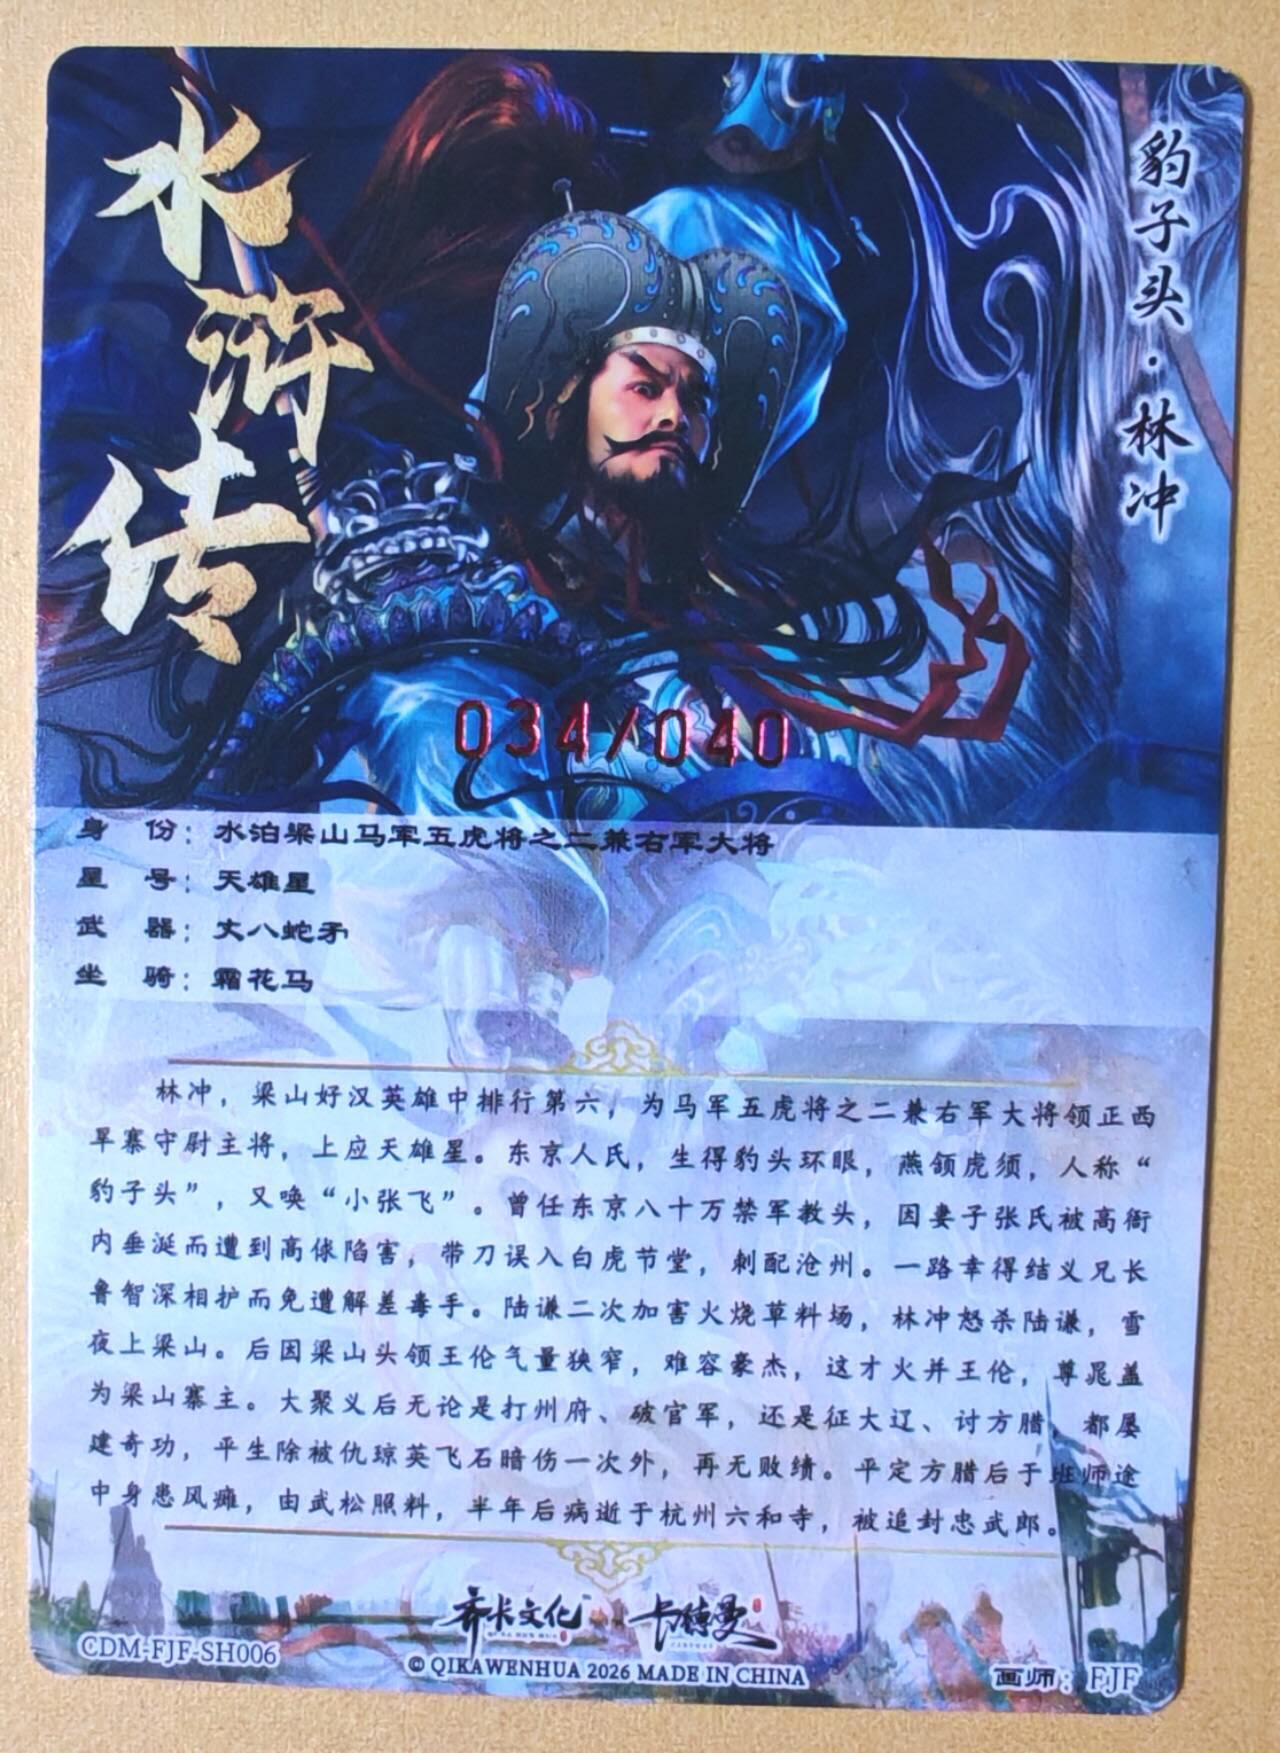 水浒传
豹子头·林冲
034/040
身 份：水泊梁山马军五虎将之二兼右军大将
星 号：天雄星
武 器：丈八蛇矛
坐 骑：霜花马
林冲，梁山好汉英雄中排行第六，为马军五虎将之二兼右军大将领正西
旱寨守尉主将，上应天雄星。东京人氏，生得豹头环眼，燕颔虎须，人称“
豹子头”，又唤“小张飞”。曾任东京八十万禁军教头，因妻子张氏被高衙
内垂涎而遭到高俅陷害，带刀误入白虎节堂，刺配沧州。一路幸得结义兄长
鲁智深相护而免遭解差毒手。陆谦二次加害火烧草料场，林冲怒杀陆谦，雪
夜上梁山。后因梁山头领王伦气量狭窄，难容豪杰，这才火并王伦，尊晁盖
为梁山寨主。大聚义后无论是打州府、破官军，还是征大辽、讨方腊，都屡
建奇功，平生除被仇琼英飞石暗伤一次外，再无败绩。平定方腊后于班师途
中身患风瘫，由武松照料，半年后病逝于杭州六和寺，被追封忠武郎。
齐卡文化 卡德曼
CDM-FJF-SH006
© QIKAWENHUA 2026 MADE IN CHINA
画师：FJF